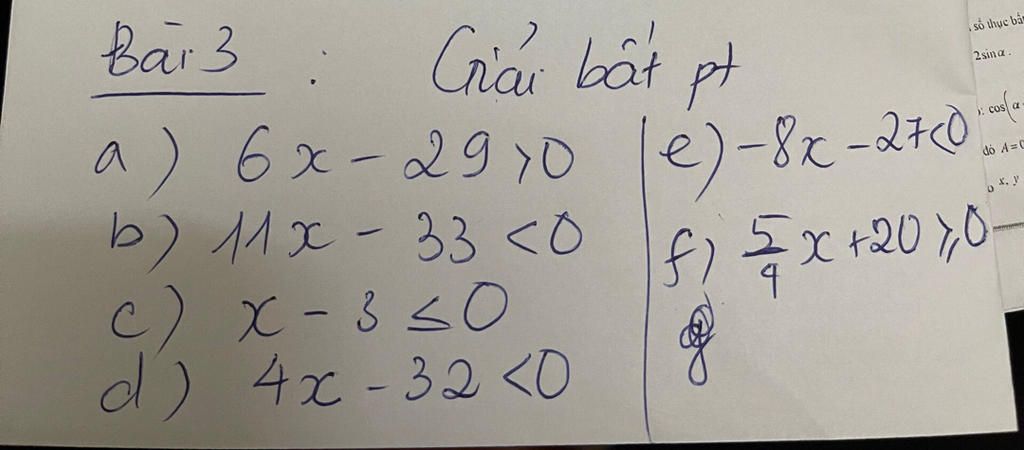 Bài 3 : Giải bất pt
a) 6x - 29 > 0
b) 11x - 33 < 0
c) x - 3 ≤ 0
d) 4x - 32 < 0
e) -8x - 27 < 0
f) 5/4 x + 20 ≥ 0
số thực bất
2sinα.
cos(α
đó A=
x, y